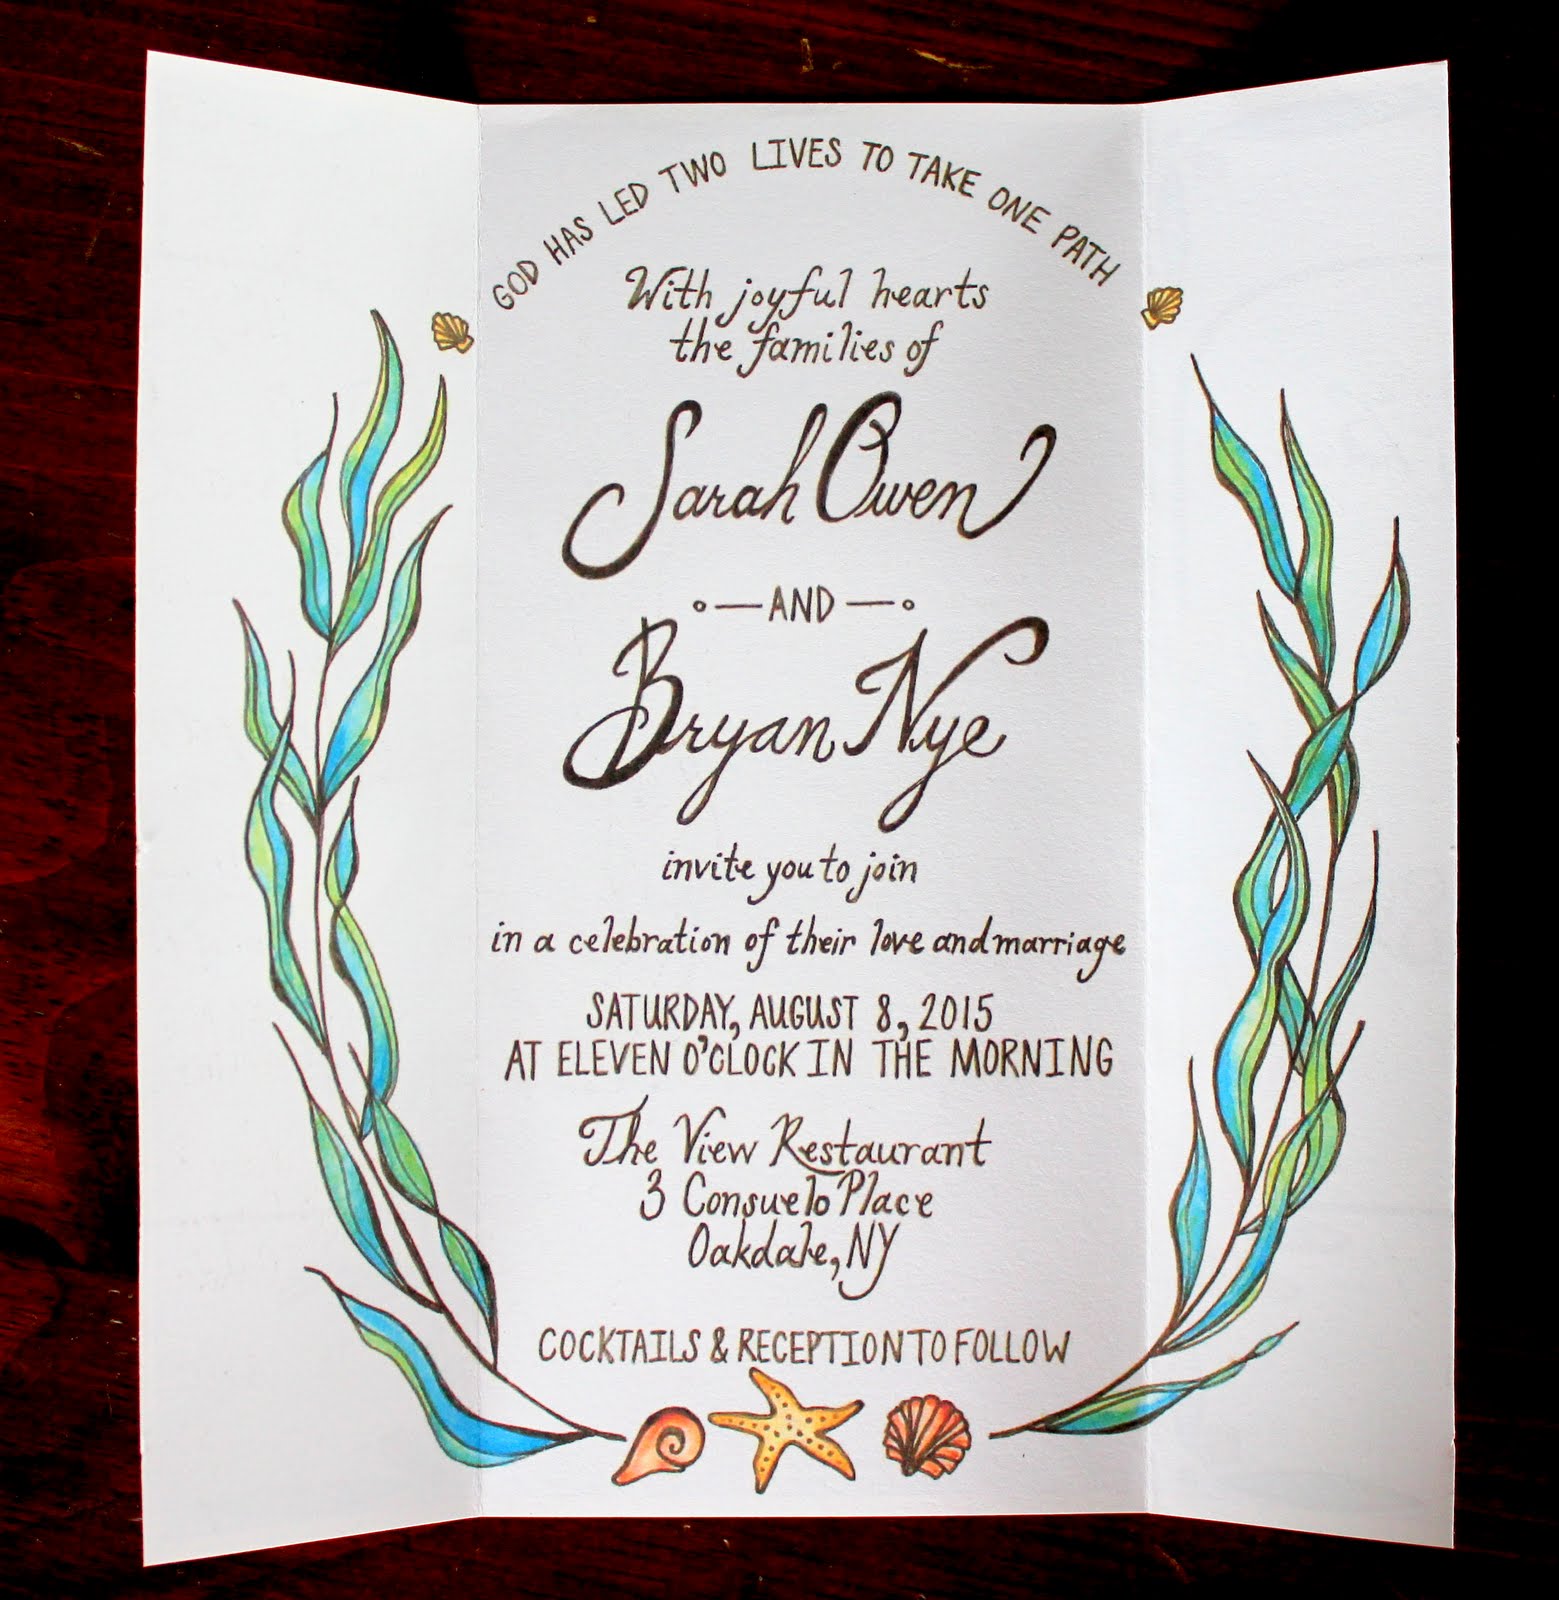 GOD HAS LED TWO LIVES TO TAKE ONE PATH
With joyful hearts
the families of
Sarah Owen
AND
Bryan Nye
invite you to join
in a celebration of their love and marriage
SATURDAY, AUGUST 8, 2015
AT ELEVEN O'CLOCK IN THE MORNING
The View Restaurant
3 Consuelo Place
Oakdale, NY
COCKTAILS & RECEPTION TO FOLLOW